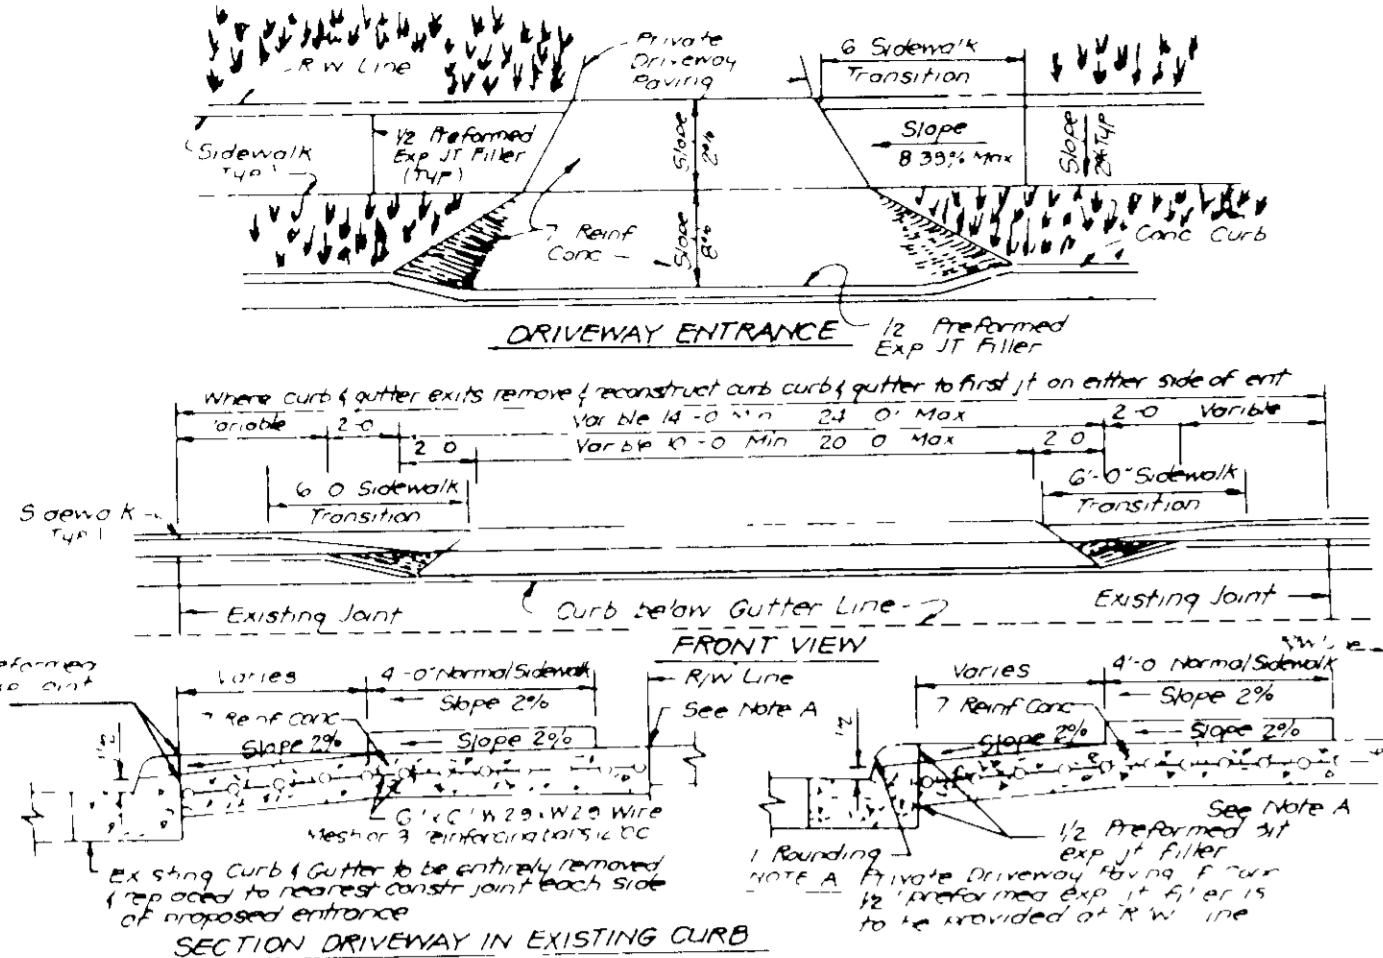 R W Line
Private
Driveway
Paving
6 Sidewalk
Transition
Sidewalk
Typ 1
1/2 Preformed
Exp JT Filler
(Typ)
Slope
2%
Slope
8 39% Max
Slope
2% Typ
7 Reinf
Conc
Slope
8%
Conc Curb
DRIVEWAY ENTRANCE
1/2 Preformed
Exp JT Filler
Where curb & gutter exits remove & reconstruct curb curb & gutter to first jt on either side of ent
Variable
2-0
Var ble 14-0 Min 24 0' Max
2-0
Varible
2 0
Var ble 10-0 Min 20 0 Max
2 0
6 0 Sidewalk
Transition
6'-0" Sidewalk
Transition
S dewa k
Typ 1
Existing Joint
Curb below Gutter Line
Existing Joint
FRONT VIEW
Varies
4-0" Normal Sidewalk
Slope 2%
R/W Line
See Note A
7 Reinf Conc
Slope 2%
Slope 2%
Varies
4'-0 Normal Sidewalk
Slope 2%
7 Reinf Conc
Slope 2%
Slope 2%
W29 x W29 Wire
Mesh or 3 reinforcing bars
Ex sting Curb & Gutter to be entirely removed
& rep aced to nearest constr joint each side
of proposed entrance
SECTION DRIVEWAY IN EXISTING CURB
See Note A
1/2 Preformed
exp jt filler
1 Rounding
NOTE A Private Driveway Paving
1/2 preformed exp jt fi er is
to be provided at R W ine